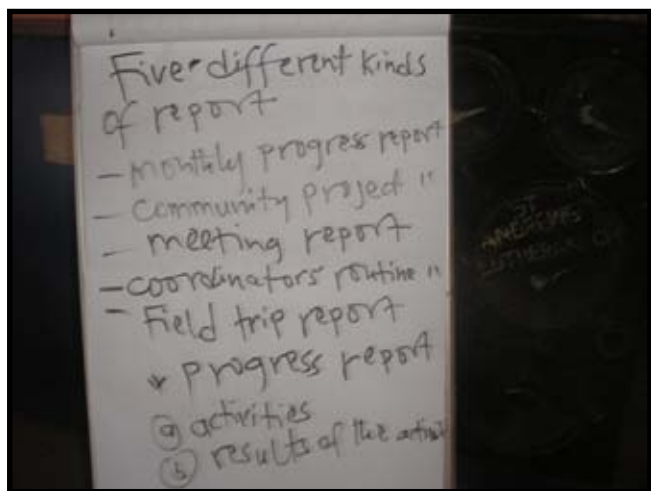 Five different kinds
of report
- monthly progress report
- Community project "
- meeting report
- coordinators' routine "
- Field trip report
* progress report
(a) activities
(b) results of the
ST
LUTHERAN